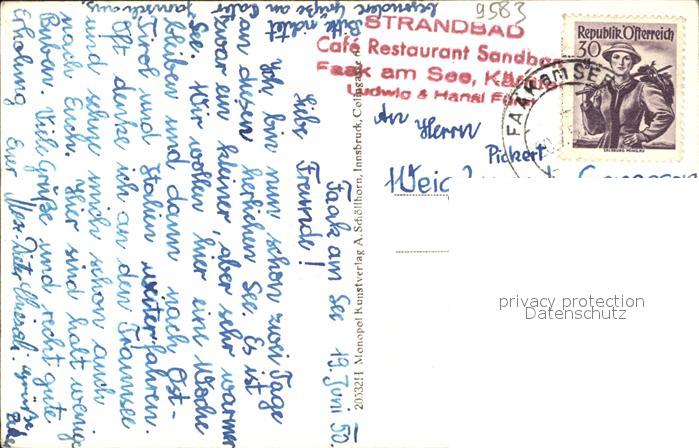 9583
STRANDBAD
Café Restaurant Sandbad
Faak am See, Kärnten
Ludwig & Hansl
Republik Österreich
30
SALZBURG PONGAU
FAAK AM SEE
An
Herrn
Pickert
privacy protection
Datenschutz
20332H Monopol Kunstverlag A. Schöllhorn, Innsbruck, Colingasse
Faak am See 19. Juni 53.
Liebe Freunde!
Ich bin nun schon zwei Tage
an diesem herrlichen See. Es ist
zwar ein kleiner, aber sehr warmer
See. Wir wollen hier eine Woche
bleiben und dann nach Ost-
Tirol und Italien weiterfahren.
Oft denke ich an den Traunsee
und sehne mich schon auch
nach Euch. Hier sind halt wenig
Buben. Viele Grüße und recht gute
Erholung Euer
Bitte richtet
Grüße an